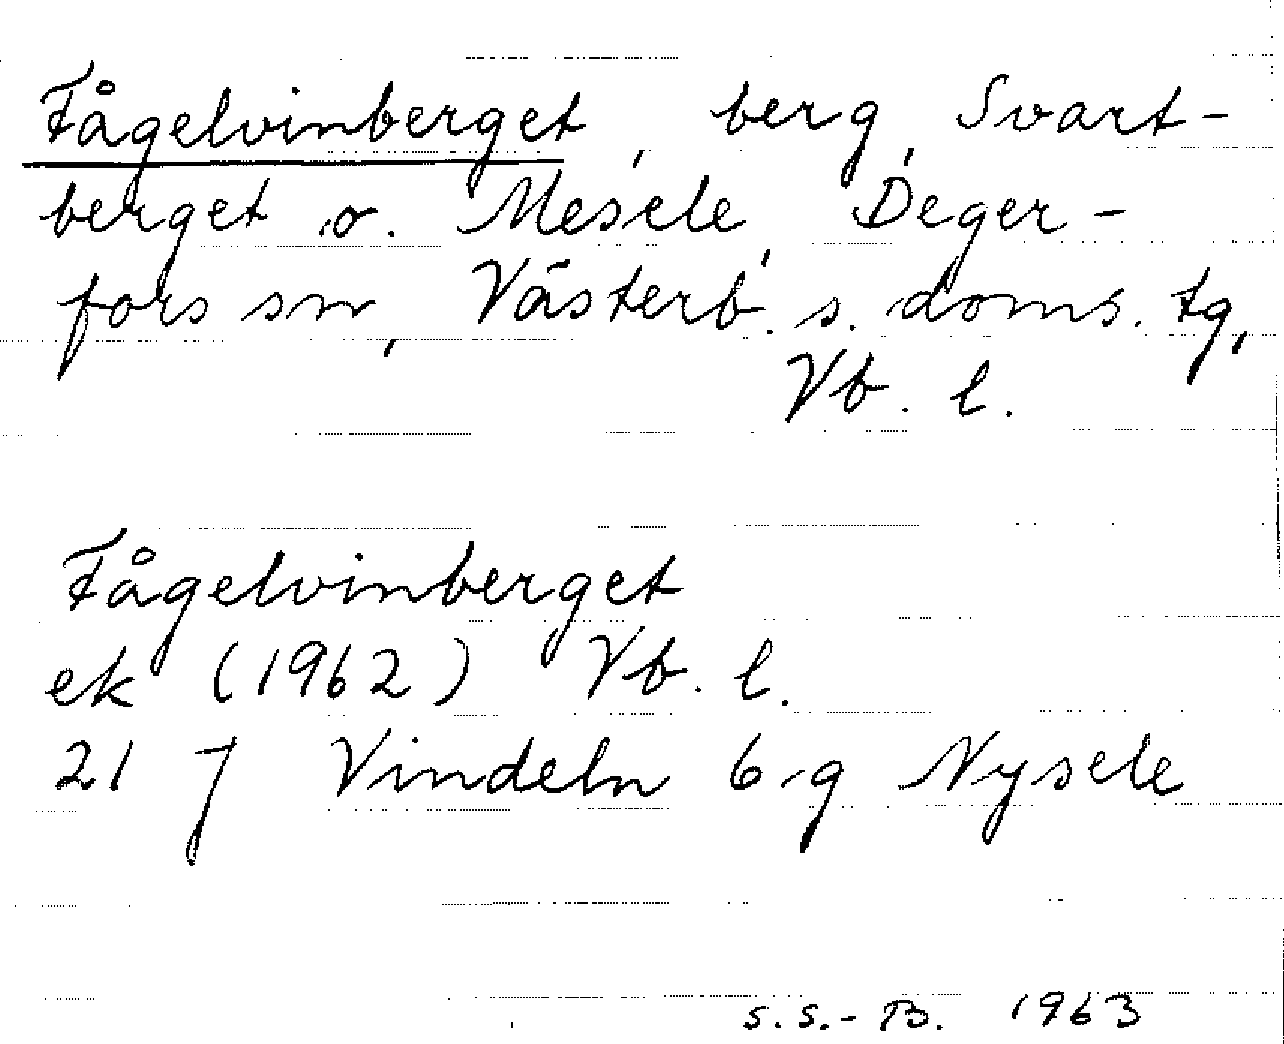 Fågelvinberget, berg, Svart-
berget o. Mesele, Deger-
fors sn, Västerb. s. doms. tg,
Vb. l.
Fågelvinberget
ek (1962) Vb. l.
21 J Vindeln 6-g Nysele
S.S.-B. 1963